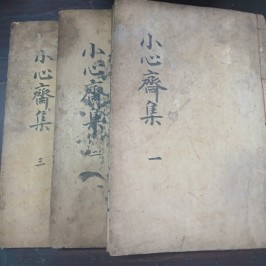 小心齋集 一
小心齋集 二
小心齋集 三